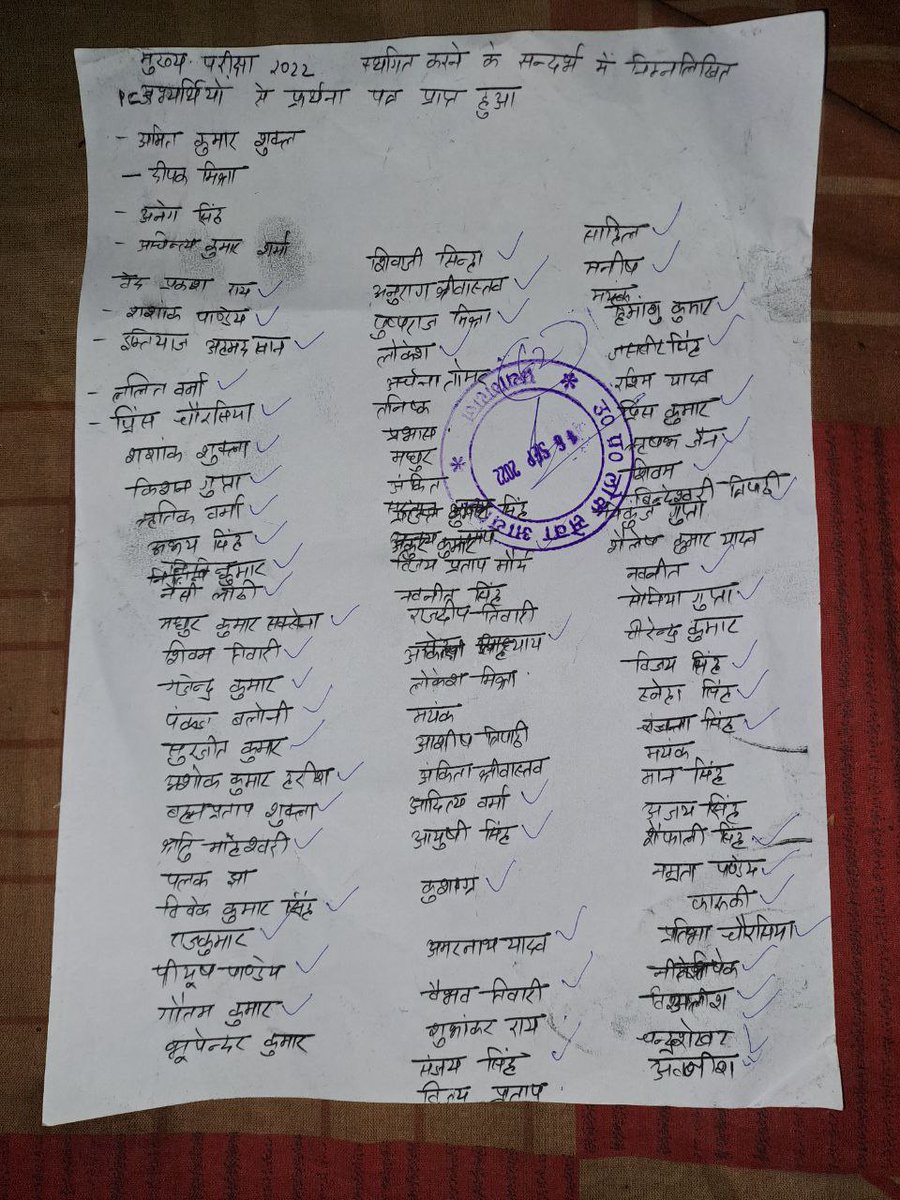 मुख्य परीक्षा 2022 स्थगित करने के सन्दर्भ में निम्नलिखित
अभ्यर्थियों से प्रर्थना पत्र प्राप्त हुआ
- अमित कुमार शुक्ल
- दीपक मिश्रा
- अनेग सिंह
- अचिन्त्य कुमार शर्मा
वेद प्रकाश राय
- शशांक पाण्डेय
- इम्तियाज अहमद खान
- ललित वर्मा
- प्रिंस चौरसिया
शशांक शुक्ला
किशन गुप्ता
ऋतिक वर्मा
अभय सिंह
कुमार
नैंसी
मधुर कुमार सक्सेना
शिवम तिवारी
गजेन्द्र कुमार
पंकज बलोनी
सुरजीत कुमार
अशोक कुमार हरीश
ब्रह्मप्रताप शुक्ला
श्रुति माहेश्वरी
पलक झा
विवेक कुमार सिंह
राजकुमार
पीयूष पाण्डेय
गौतम कुमार
भूपेन्दर कुमार
शिवाजी सिन्हा
अनुराग श्रीवास्तव
पुष्पराज मिश्रा
लोकेश
अर्चना तोमर
तनिष्क
प्रभाष
मधुर
अंकित
सिंह
कुमार
विजय प्रताप मौर्य
नवनीत सिंह
राजदीप तिवारी
लोकेश मिश्रा
मयंक
आशीष त्रिपाठी
अंकिता श्रीवास्तव
आदित्य वर्मा
आयुषी सिंह
कुशाग्र
अमरनाथ यादव
वैभव तिवारी
शुभांकर राय
संजय सिंह
विजय प्रताप
साहिल
मनीष
मयंक
हिमांशु कुमार
जसवीर सिंह
रश्मि यादव
प्रिंस कुमार
ऋषभ जैन
शिवम
बिन्देश्वरी त्रिपाठी
निकुंज गुप्ता
शैलेष कुमार यादव
नवनीत
सोमिया गुप्ता
वीरेन्द्र कुमार
विजय सिंह
स्नेहा सिंह
सिंह
मयंक
मान सिंह
अजय सिंह
शेफाली सिंह
नम्रता पाण्डेय
फारुकी
प्रतिभा चौरसिया
चन्द्रशेखर
अवनीश
उ० प्र० लोक सेवा आयोग
16 SEP 2022